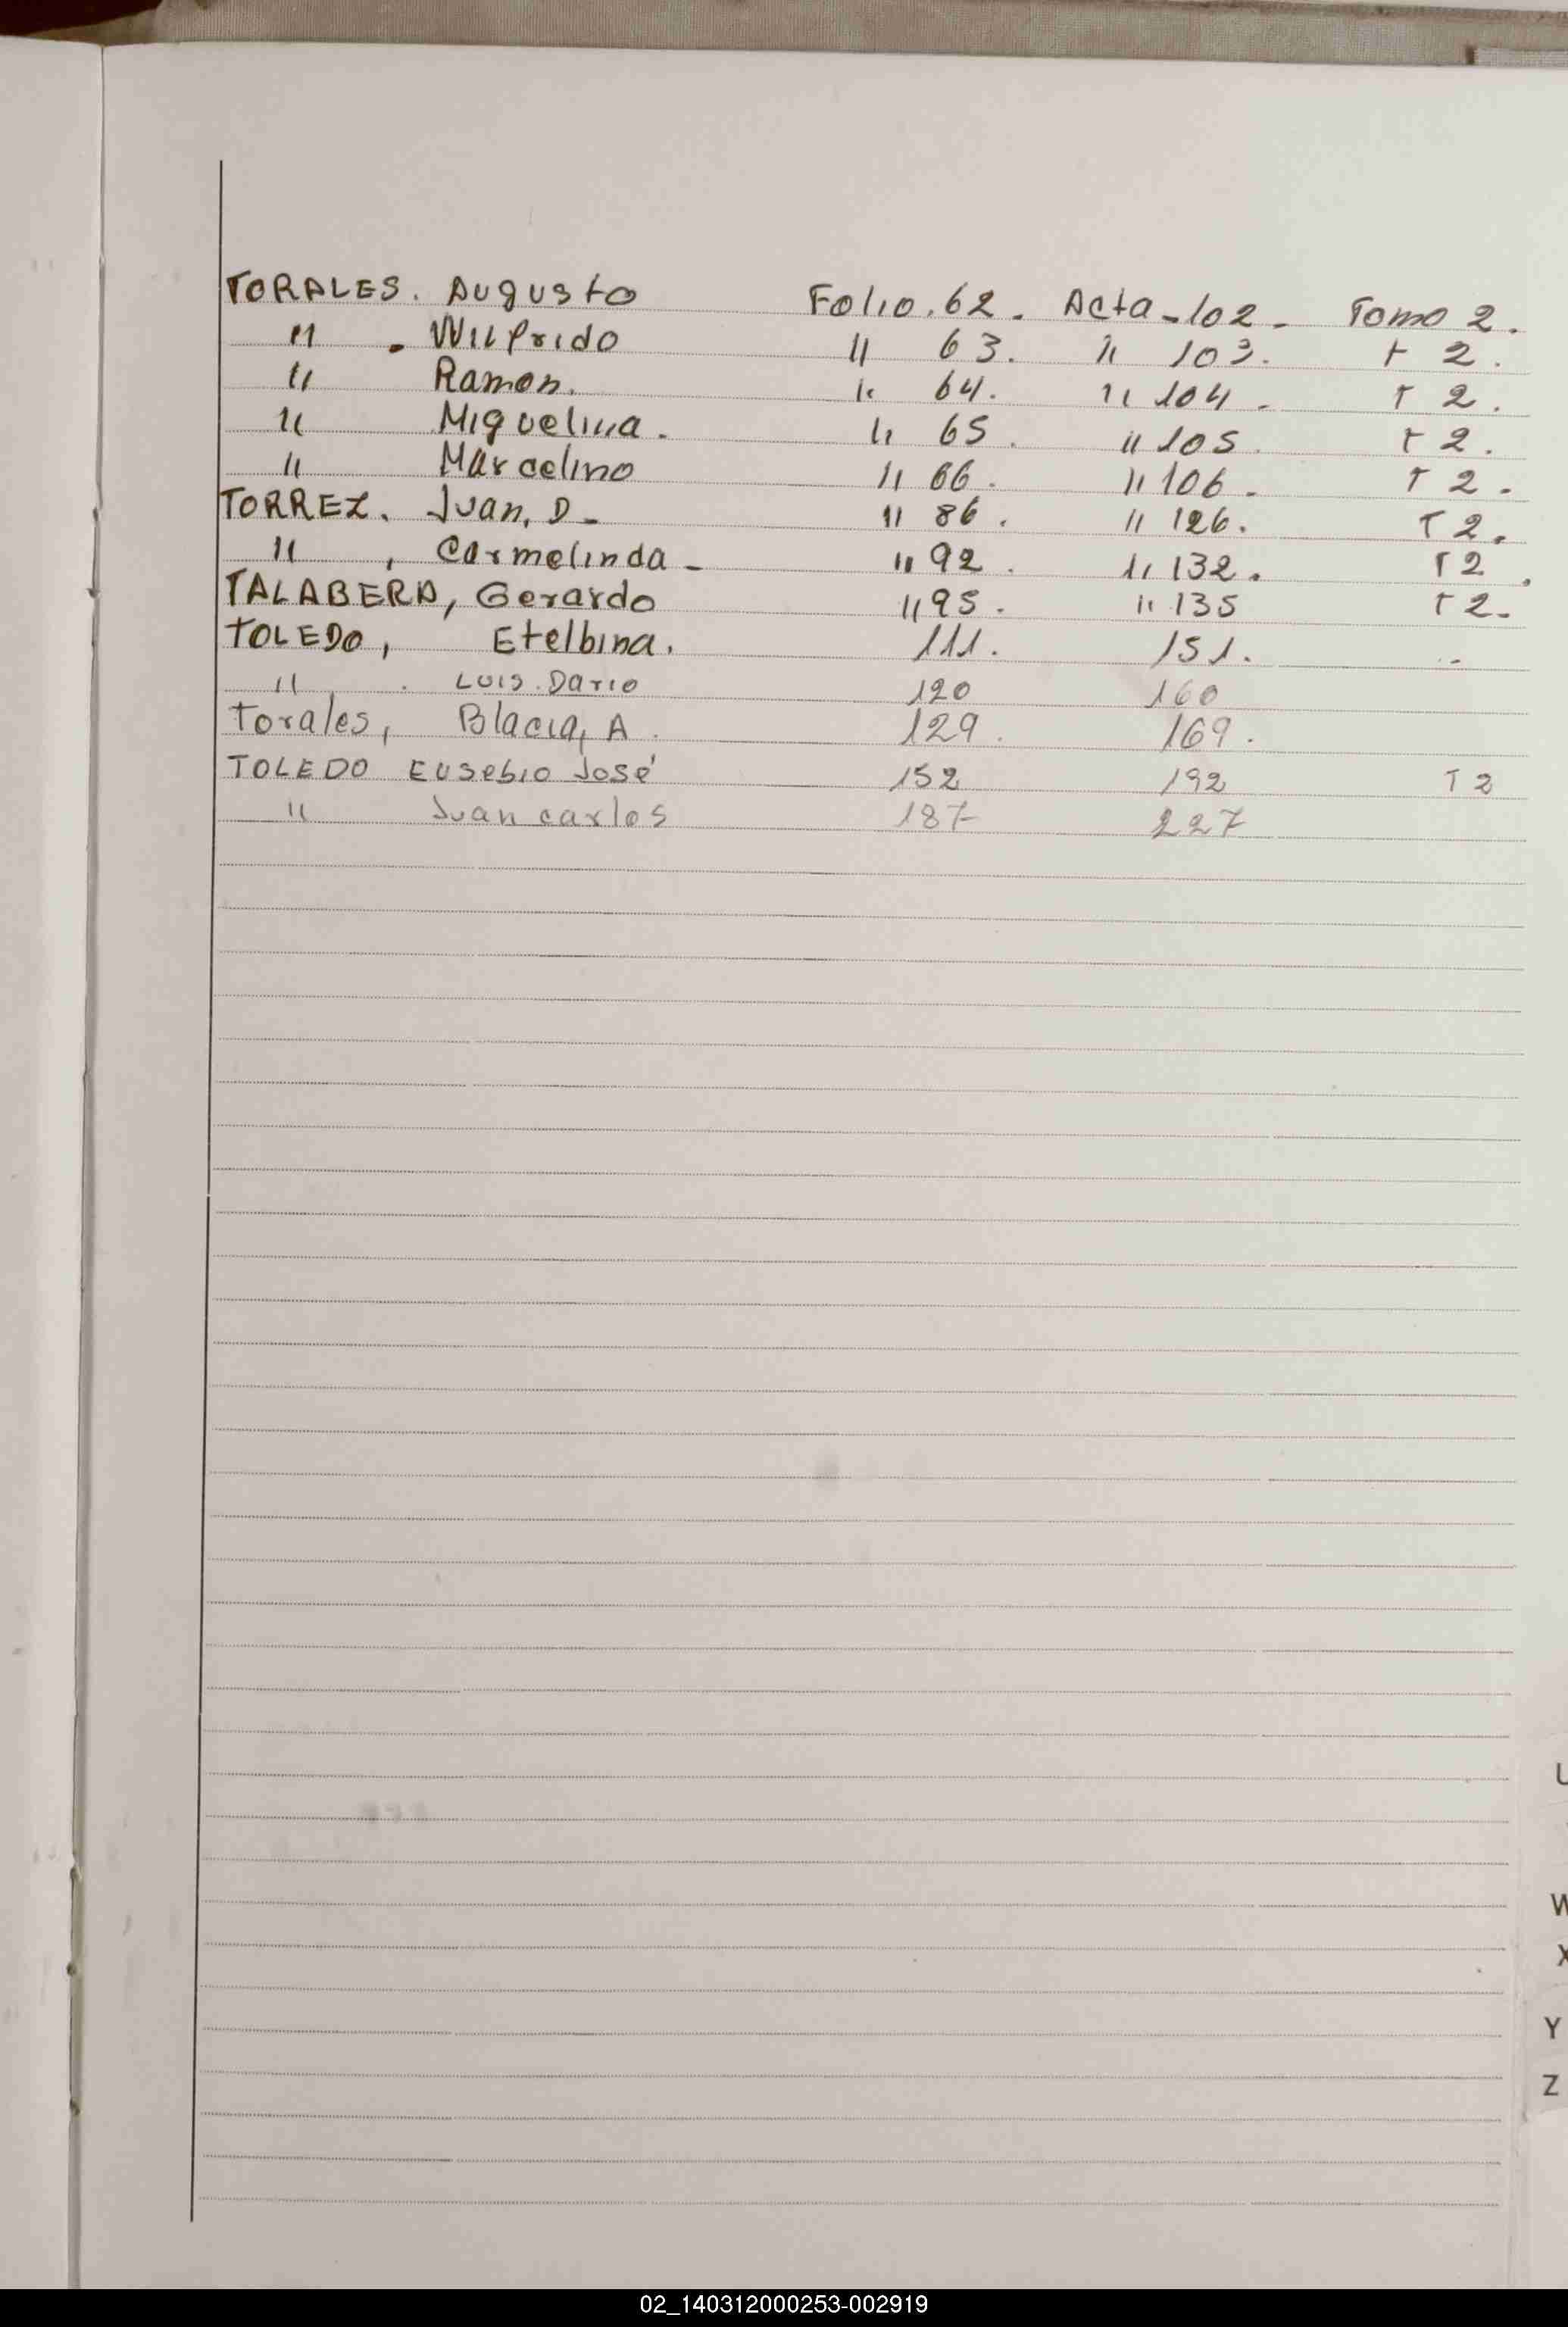 TORALES. Augusto Folio. 62. Acta - 102 - Tomo 2.
" . Wilfrido " 63. " 103. T 2.
" Ramon. " 64. " 104 - T 2.
" Miguelina. " 65. " 105. T 2.
" Marcelino " 66. " 106. T 2.
TORREZ. Juan, D - " 86. " 126. T 2.
" , Carmelinda - " 92. " 132. T 2.
TALABERA, Gerardo " 95. " 135 T 2.
TOLEDO, Etelbina. 111. 151. ..
" . LUIS. Dario 120 160
Torales, Blacia, A. 129. 169.
TOLEDO Eusebio José 152 192 T 2
" Juan carlos 187 227
U
W
X
Y
Z
02_140312000253-002919